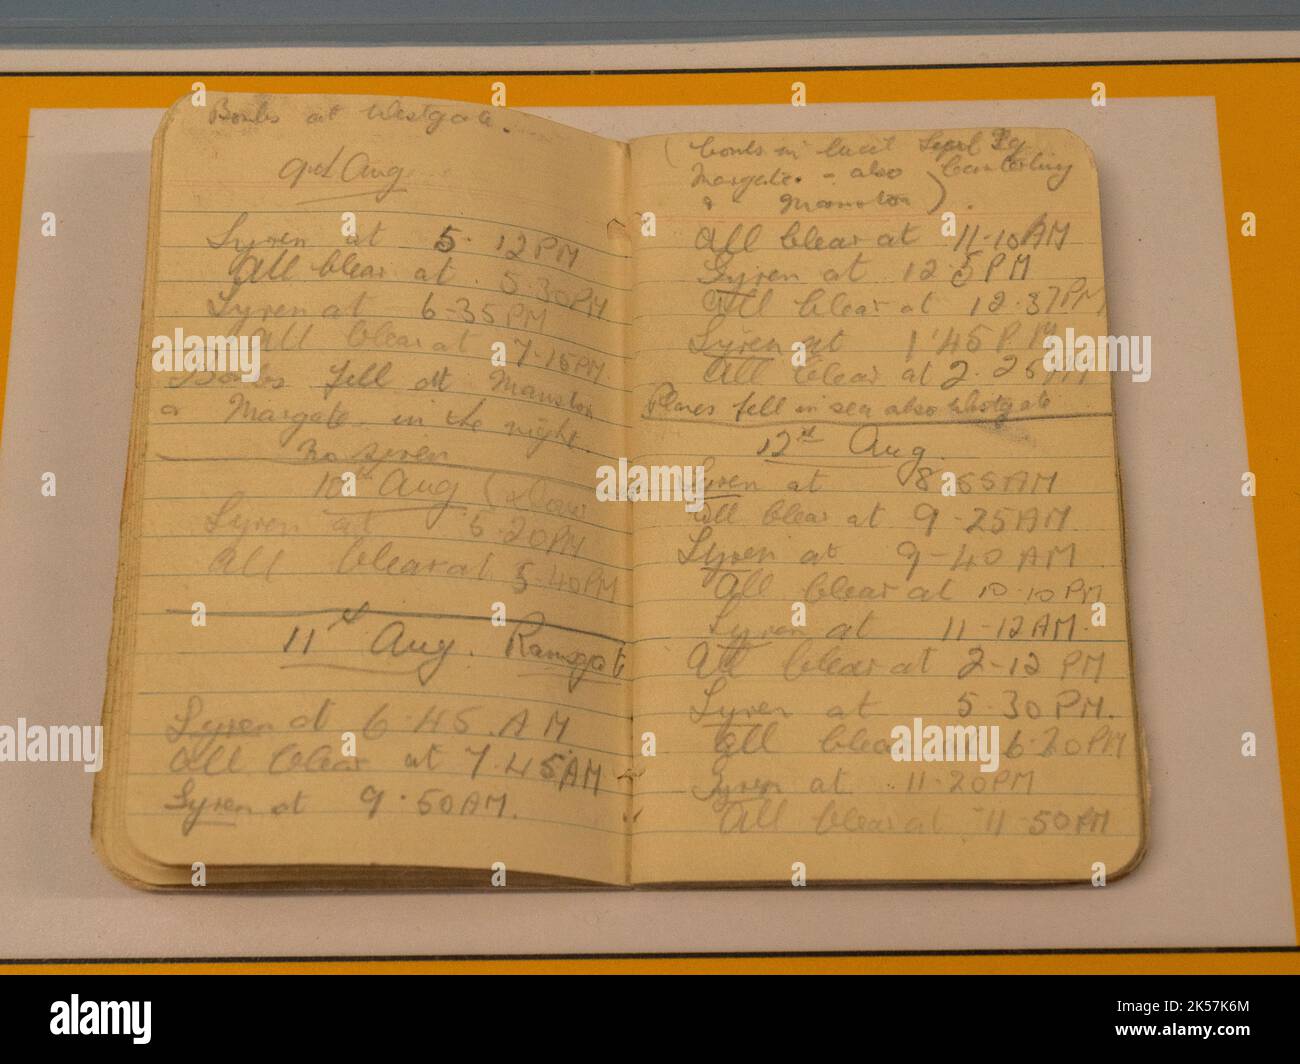 Bombs at Westgate.
9th Aug
Syren at 5.12PM
All Clear at 5.30PM
Syren at 6-35PM
All Clear at 7-15PM
Bombs fell at Manston
& Margate in the night.
No Siren
10th Aug
Syren at 5.20PM
All Clear at 5.40PM
11th Aug. Ramsgate
Syren at 6.45.AM
All Clear at 7.45AM
Syren at 9.50AM.
(bombs in
Margate. - also Canterbury
& Manston).
All Clear at 11-10AM
Syren at 12.5PM
All Clear at 12.37PM
Syren at 1.45PM
All Clear at 2.25PM
Planes fell in sea also Westgate
12th Aug.
Syren at 8.55AM
All Clear at 9-25AM
Syren at 9-40AM
All Clear at 10.10PM
Syren at 11-12AM.
All Clear at 2-12 PM
Syren at 5.30PM.
All Clear at 6.20PM
Syren at 11-20PM
All Clear at 11-50PM
alamy
Image ID: 2K57K6M
www.alamy.com